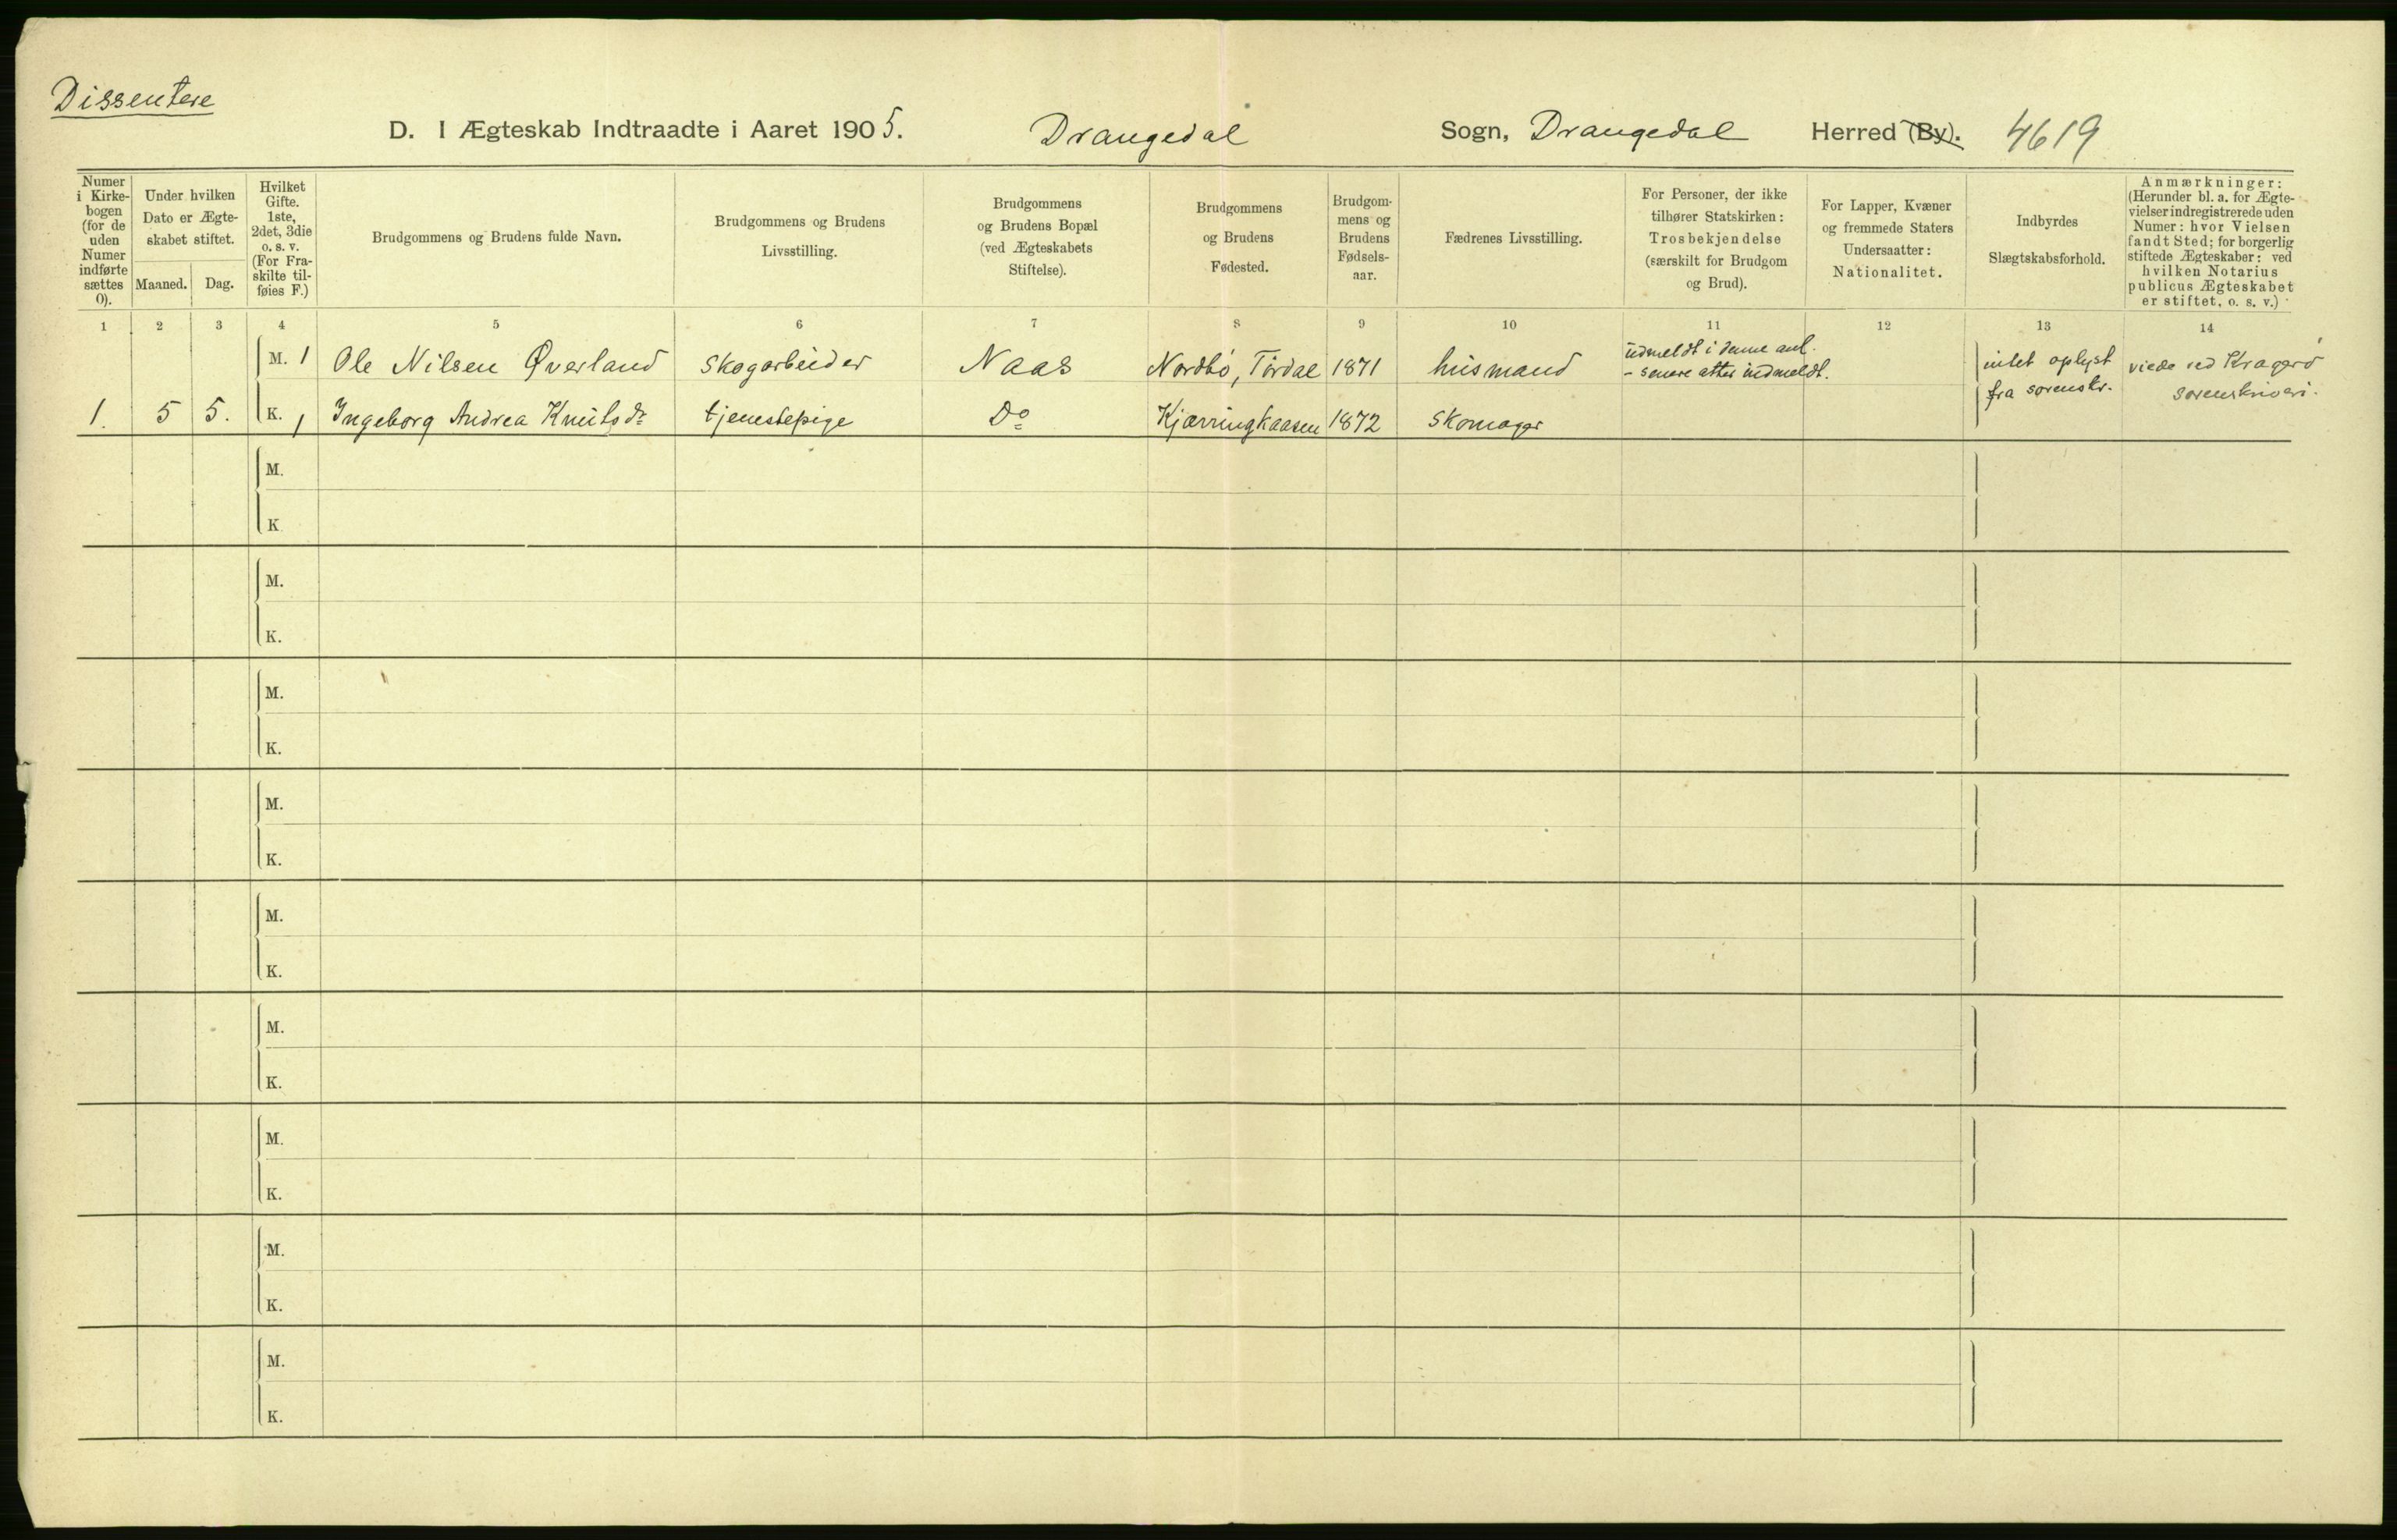 Dissentere
D. I Ægteskab Indtraadte i Aaret 1905. Drangedal Sogn, Drangedal Herred (By). 4619
Numer i Kirkebogen (for de uden Numer indførte sættes 0).
Under hvilken Dato er Ægteskabet stiftet.
Maaned. Dag.
Hvilket Gifte. 1ste, 2det, 3die o. s. v. (For Fraskilte tilføies F.)
Brudgommens og Brudens fulde Navn.
Brudgommens og Brudens Livsstilling.
Brudgommens og Brudens Bopæl (ved Ægteskabets Stiftelse).
Brudgommens og Brudens Fødested.
Brudgommens og Brudens Fødselsaar.
Fædrenes Livsstilling.
For Personer, der ikke tilhører Statskirken: Trosbekjendelse (særskilt for Brudgom og Brud).
For Lapper, Kvæner og fremmede Staters Undersaatter: Nationalitet.
Indbyrdes Slægtskabsforhold.
Anmærkninger: (Herunder bl. a. for Ægtevielser indregistrerede uden Numer: hvor Vielsen fandt Sted; for borgerlig stiftede Ægteskaber: ved hvilken Notarius publicus Ægteskabet er stiftet, o. s. v.)
1 2 3 4 5 6 7 8 9 10 11 12 13 14
M. 1 Ole Nilsen Øverland Skogarbeider Naas Nordbø, Tørdal 1871 husmand udmeldt i denne anl. - senere atter indmeldt. intet oplyst fra sorenskr. viede ved Kragerø sorenskriveri.
1. 5 5. K. 1 Ingeborg Andrea Knutsdr tjenestepige Do Kjærringkaasen 1872 Skomager
M.
K
M.
K.
M.
K.
M.
K.
M.
K.
M.
K.
M.
K.
M.
K.
M.
K.